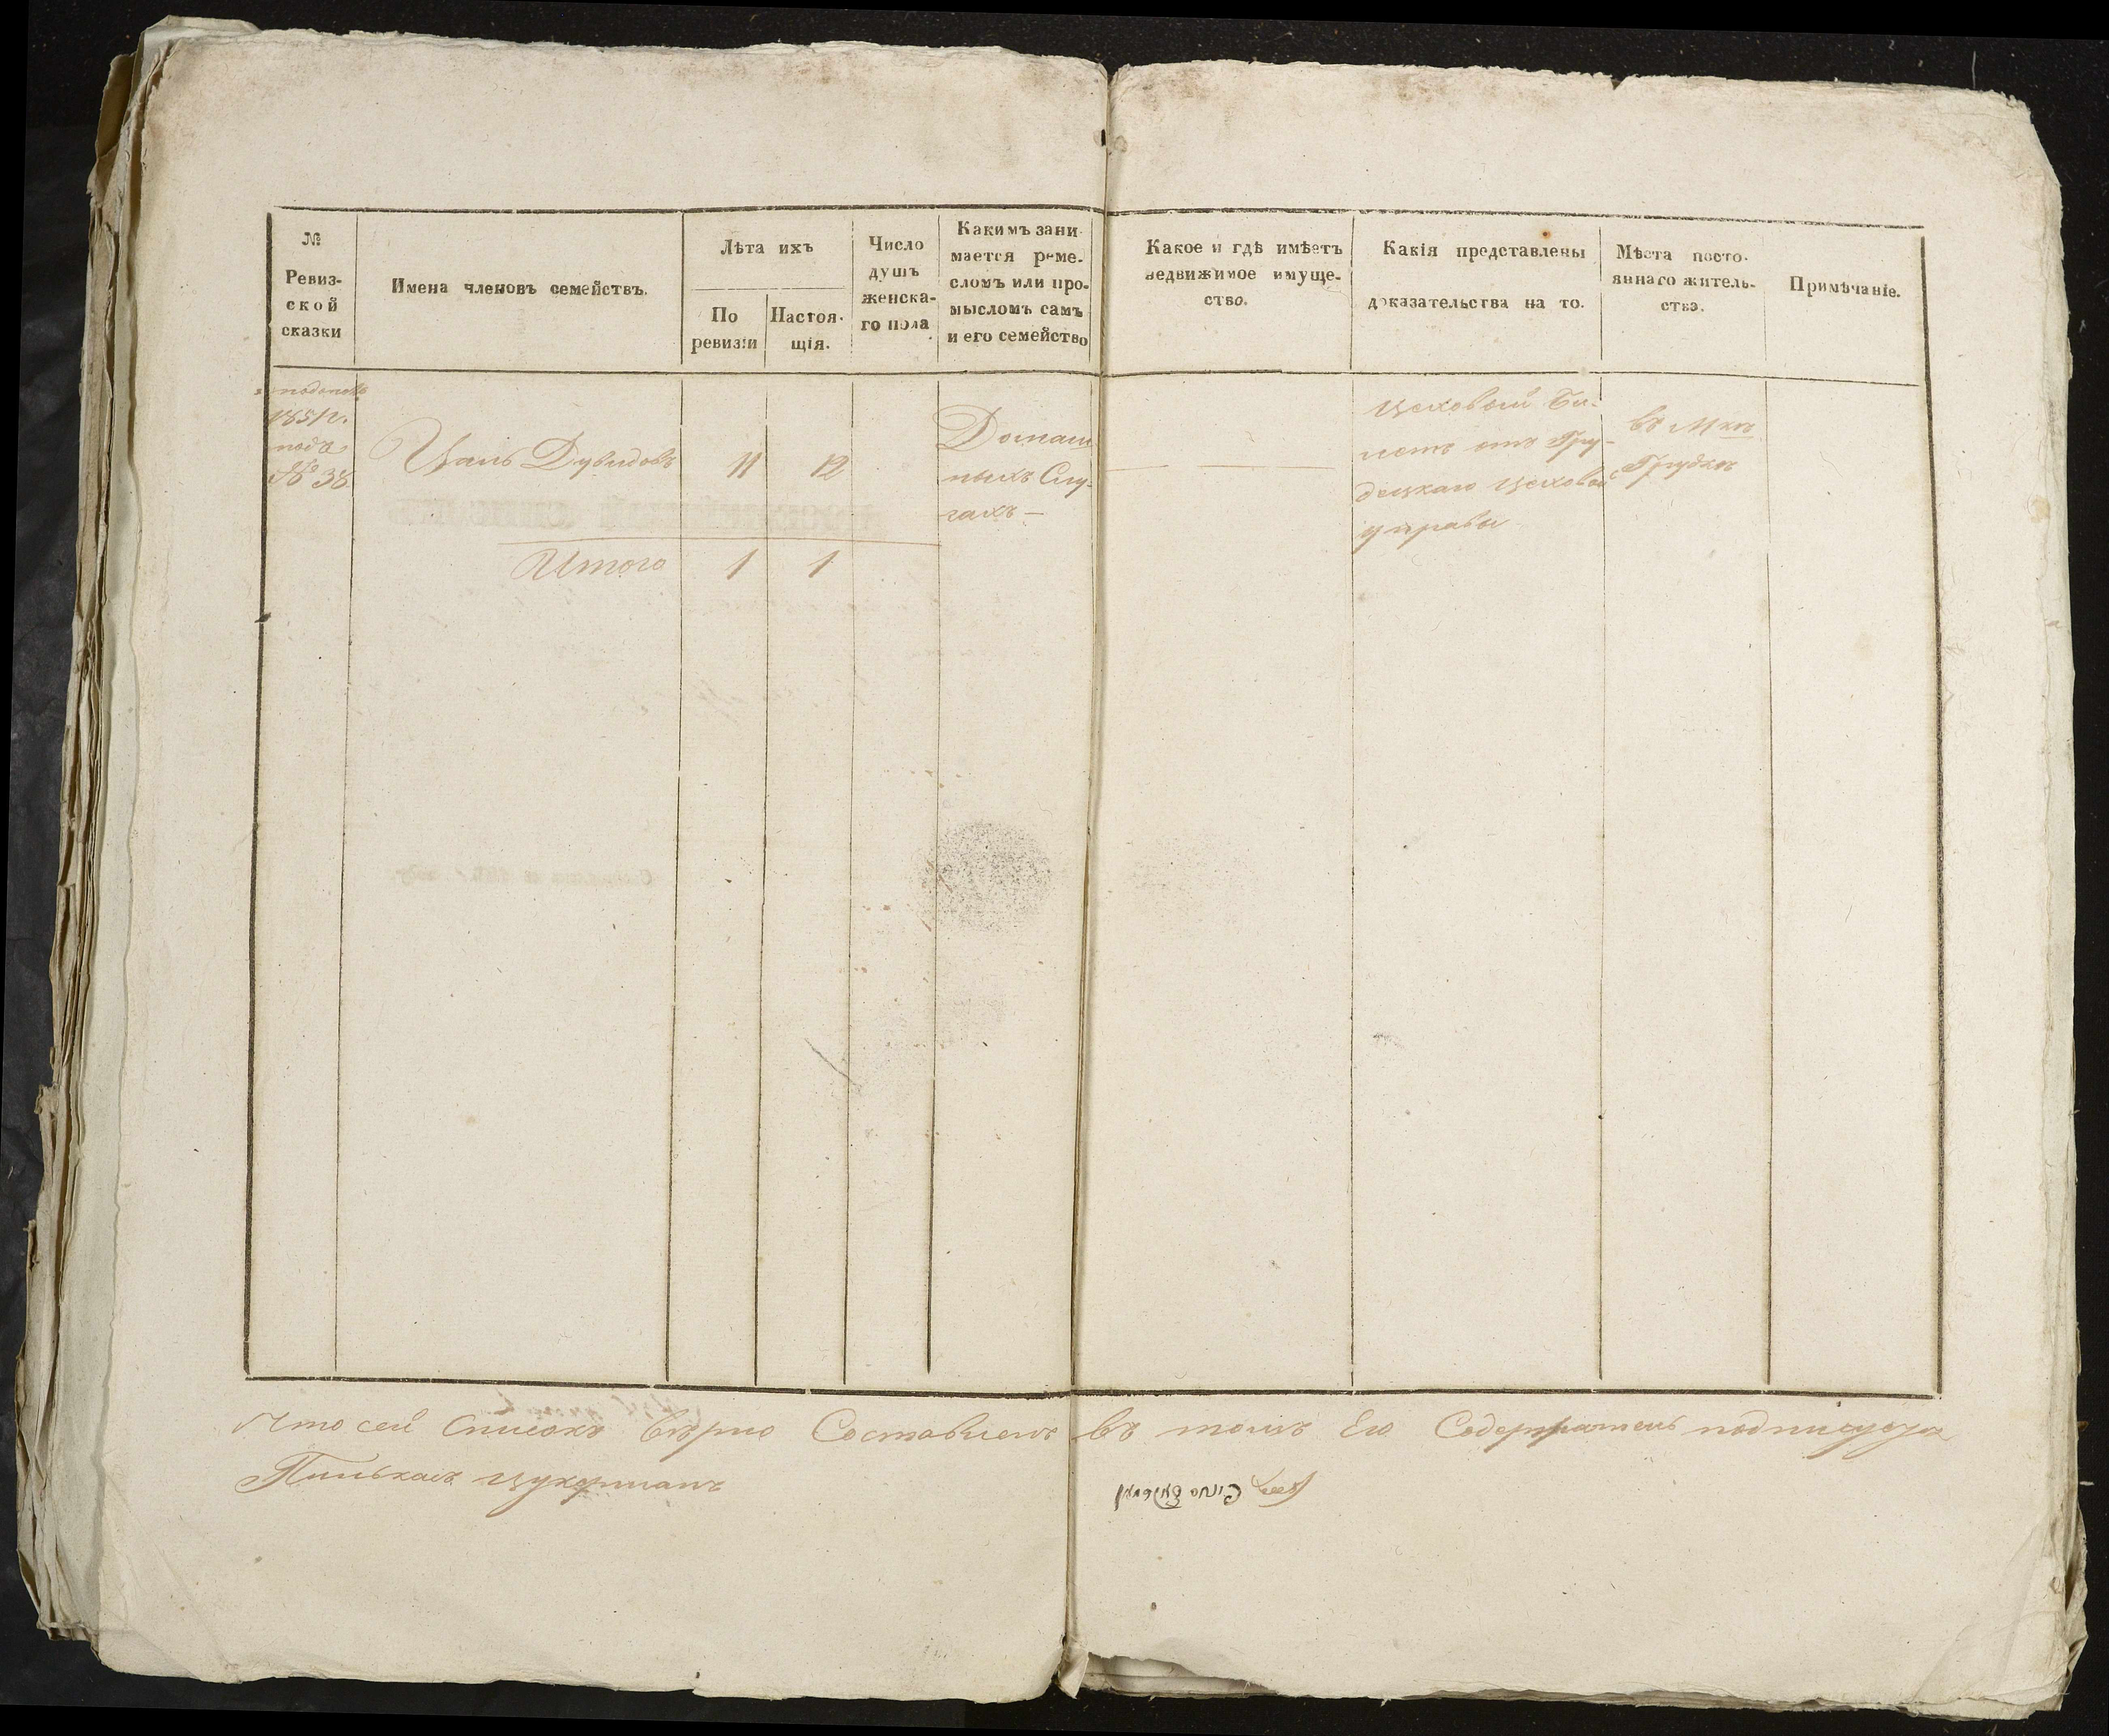 №
Ревиз-
ской
сказки
Имена членовъ семействъ.
Лѣта ихъ
По
ревизіи
Настоя-
щія.
Число
душъ
женска-
го пола
Какимъ зани-
мается реме-
сломъ или про-
мысломъ самъ
и его семейство
Какое и гдѣ имѣетъ
недвижимое имуще-
ство.
Какія представлены
доказательства на то.
Мѣста посто-
яннаго житель-
ства.
Примѣчаніе.
1851 г.
подъ
№ 38
Дувидовъ 11 12
Домаш
ныхъ Слу-
гахъ —
Цеховой Би-
летъ отъ Гру-
децкаго Цеховой
управы
въ Мкѣ
Грудкѣ
Итого 1 1
Что сей Списокъ вѣрно Составленъ въ томъ Его Содержатель подписуюся
Пинькасъ Цукерманъ